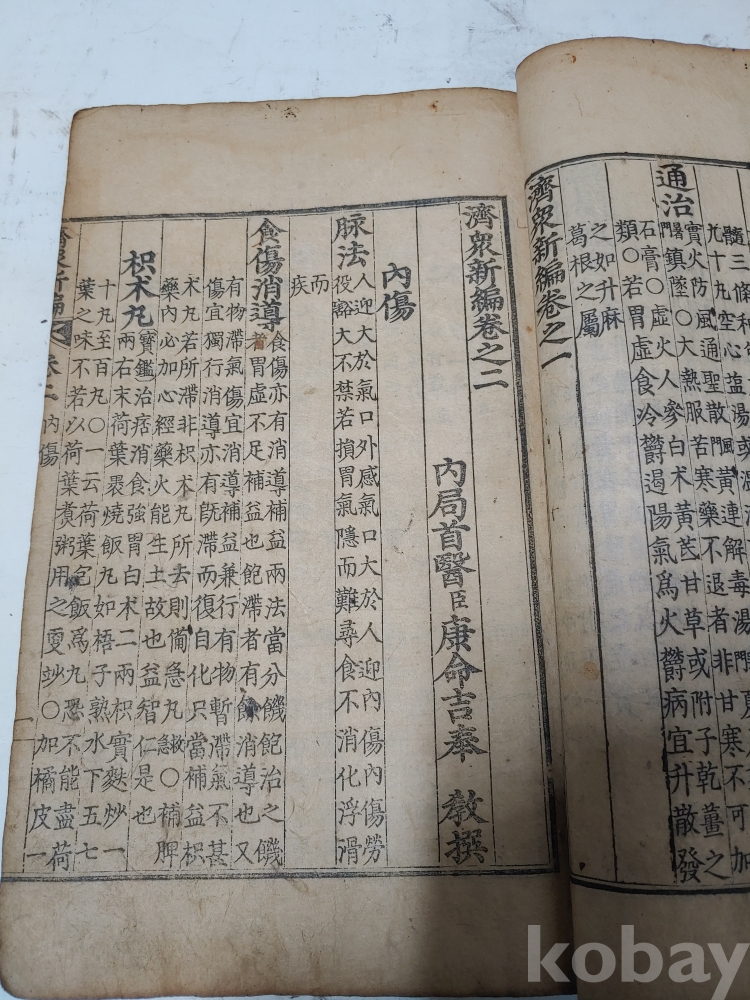 九十九空心
通治
實火防風通聖散門風黃連解毒湯門
門暑鎮陸○大熱服苦寒藥不退者非甘寒不可加
石膏○虛火人參白术黃芪甘草或附子乾薑之
類○若胃虛食冷鬱遏陽氣爲火鬱病宜升散發
之如升麻
葛根之屬
濟衆新編卷之一
濟衆新編卷之二
內局首醫臣康命吉奉 敎撰
內傷
脉法 人迎大於氣口外感氣口大於人迎內傷內傷勞
役豁大不禁若損胃氣隱而難尋食不消化浮滑
而
疾
食傷消導 食傷亦有消導補益兩法當分饑飽治之饑
者胃虛不足補益也飽滯者有餘消導也又
有物滯氣傷宜消導補益兼行有物暫滯氣不甚
傷宜獨行消導亦有旣滯而復自化只當補益枳
术丸若所滯非枳术丸所去則備急丸救急○補脾
藥內必加心經藥火能生土故也益智仁是也
枳术丸 寶鑑治痞消食強胃白术二兩枳實麩炒一
兩右末荷葉裹燒飯丸如梧子熟水下五七
十丸至百丸○一云荷葉包飯爲丸恐不能盡荷
葉之味不若以荷葉煑粥用之更妙○加橘皮一
濟衆新編 卷二 內傷 一
kobay